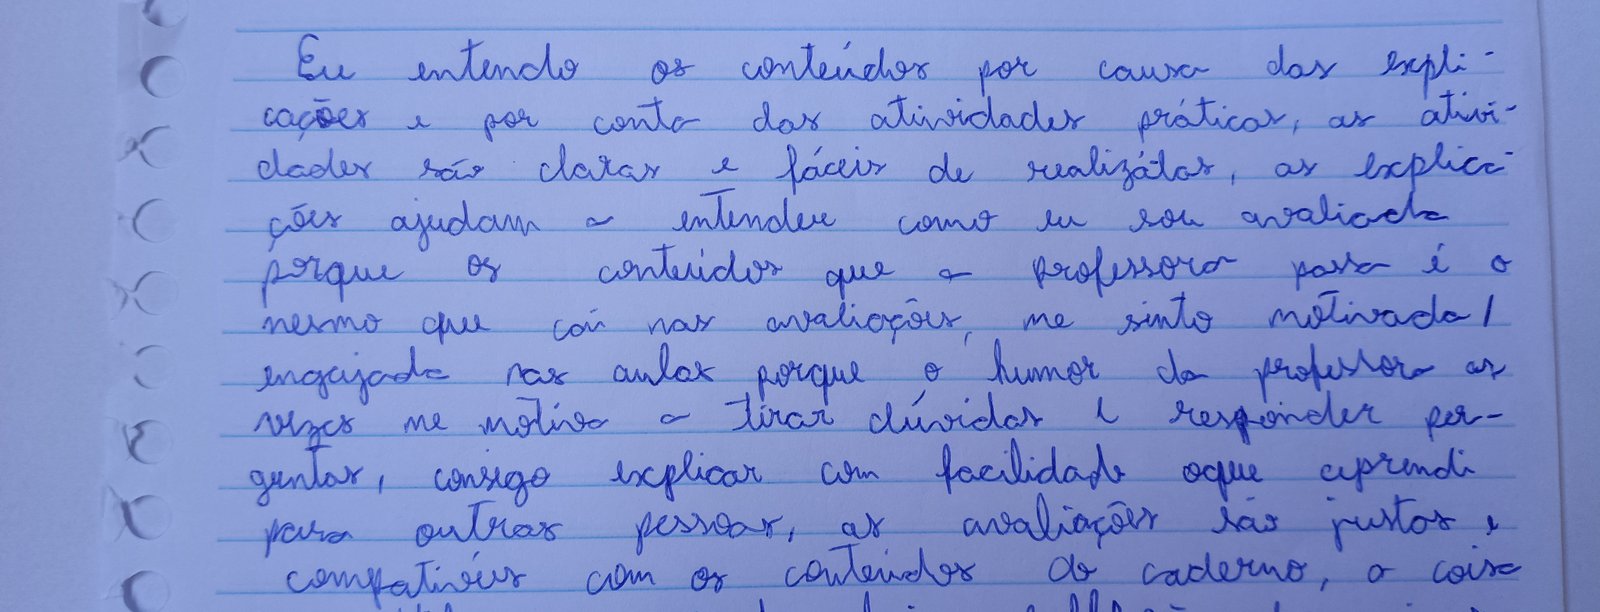 Eu entendo os conteúdos por causa das expli-
cações e por conta das atividades práticas, as ativi-
dades são claras e fáceis de realizálas, as explica-
ções ajudam a entender como eu sou avaliada
porque os conteúdos que a professora passa é o
mesmo que cai nas avaliações, me sinto motivada/
engajada nas aulas porque o humor da professora as
vezes me motiva a tirar dúvidas e responder per-
guntas, consigo explicar com facilidade oque aprendi
para outras pessoas, as avaliações são justas e
compativéis com os conteúdos do caderno, a coisa